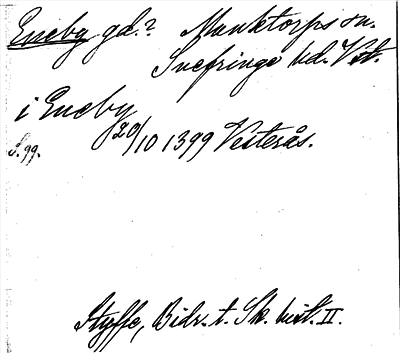 Eneby gd.? Munktorps sn.
Snefringe hd. Vstm.
i Eneby
20/10 1399 Vesterås.
S. 99.
Styffe, Bidr. t. Sk. hist. II.